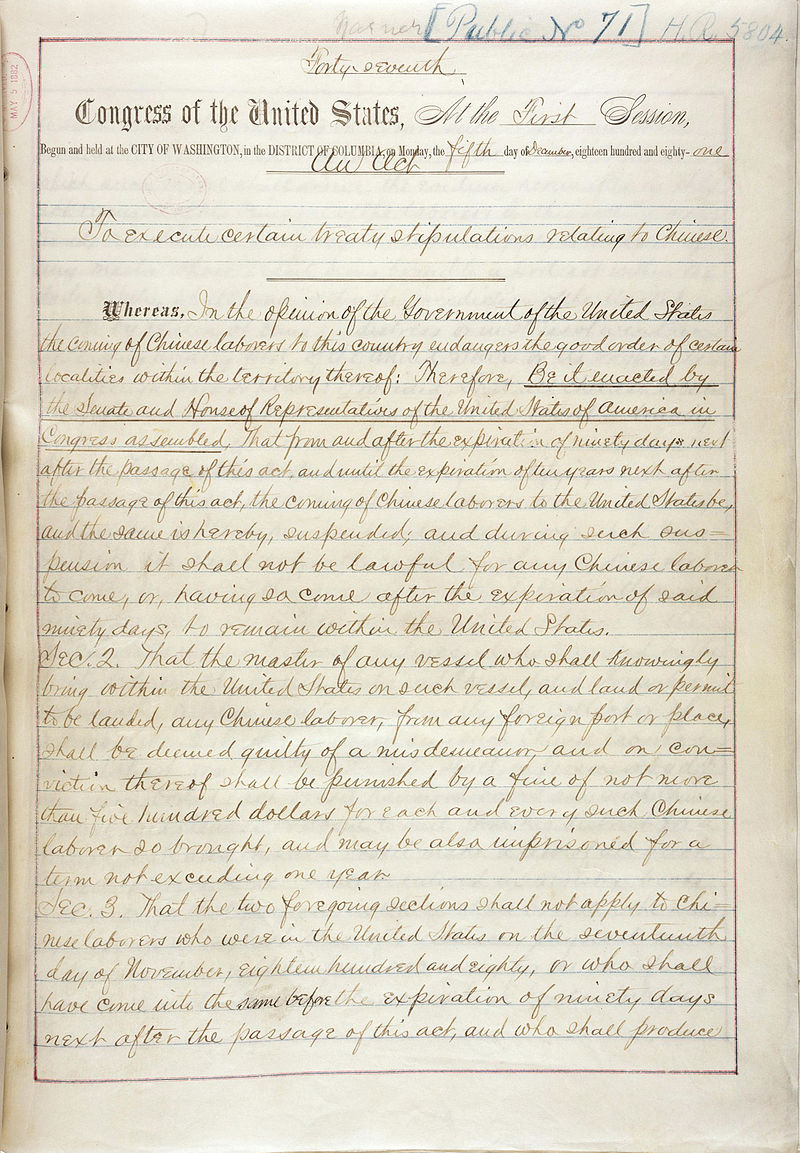 [Public No 71] H.R. 5804.
MAY 5 1882
Forty-seventh
Congress of the United States, At the First Session,
Begun and held at the CITY OF WASHINGTON, in the DISTRICT OF COLUMBIA, on Monday, the fifth day of December, eighteen hundred and eighty-one
An Act
To execute certain treaty stipulations relating to Chinese.
Whereas, In the opinion of the Government of the United States
the coming of Chinese laborers to this country endangers the good order of certain
localities within the territory thereof: Therefore, Be it enacted by
the Senate and House of Representatives of the United States of America in
Congress assembled, That from and after the expiration of ninety days next
after the passage of this act, and until the expiration of ten years next after
the passage of this act, the coming of Chinese laborers to the United States be,
and the same is hereby, suspended; and during such sus=
pension it shall not be lawful for any Chinese laborer
to come, or, having so come after the expiration of said
ninety days, to remain within the United States.
SEC. 2. That the master of any vessel who shall knowingly
bring within the United States on such vessel, and land or permit
to be landed, any Chinese laborer, from any foreign port or place,
shall be deemed guilty of a misdemeanor, and on con=
viction thereof shall be punished by a fine of not more
than five hundred dollars for each and every such Chinese
laborer so brought, and may be also imprisoned for a
term not exceeding one year.
SEC. 3. That the two foregoing sections shall not apply to Chi=
nese laborers who were in the United States on the seventeenth
day of November, eighteen hundred and eighty, or who shall
have come into the same before the expiration of ninety days
next after the passage of this act, and who shall produce